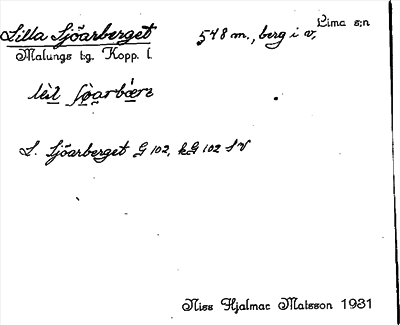 Lima s:n
Lilla Sjöarberget 548 m., berg i v,
Malungs tg. Kopp. l.
L. Sjöarberget G 102, kG 102 SV
Niss Hjalmar Matsson 1931